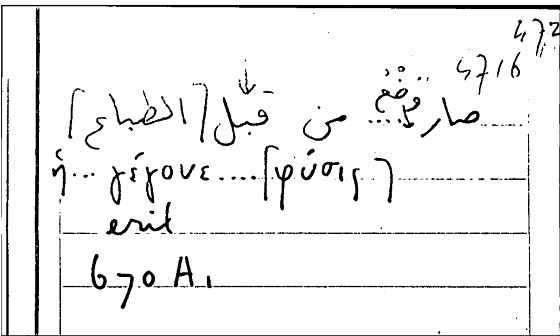 472
4716
صار .... من قبل [الطباع]
ἡ... γέγονε....[φύσις]
erit
670 A,